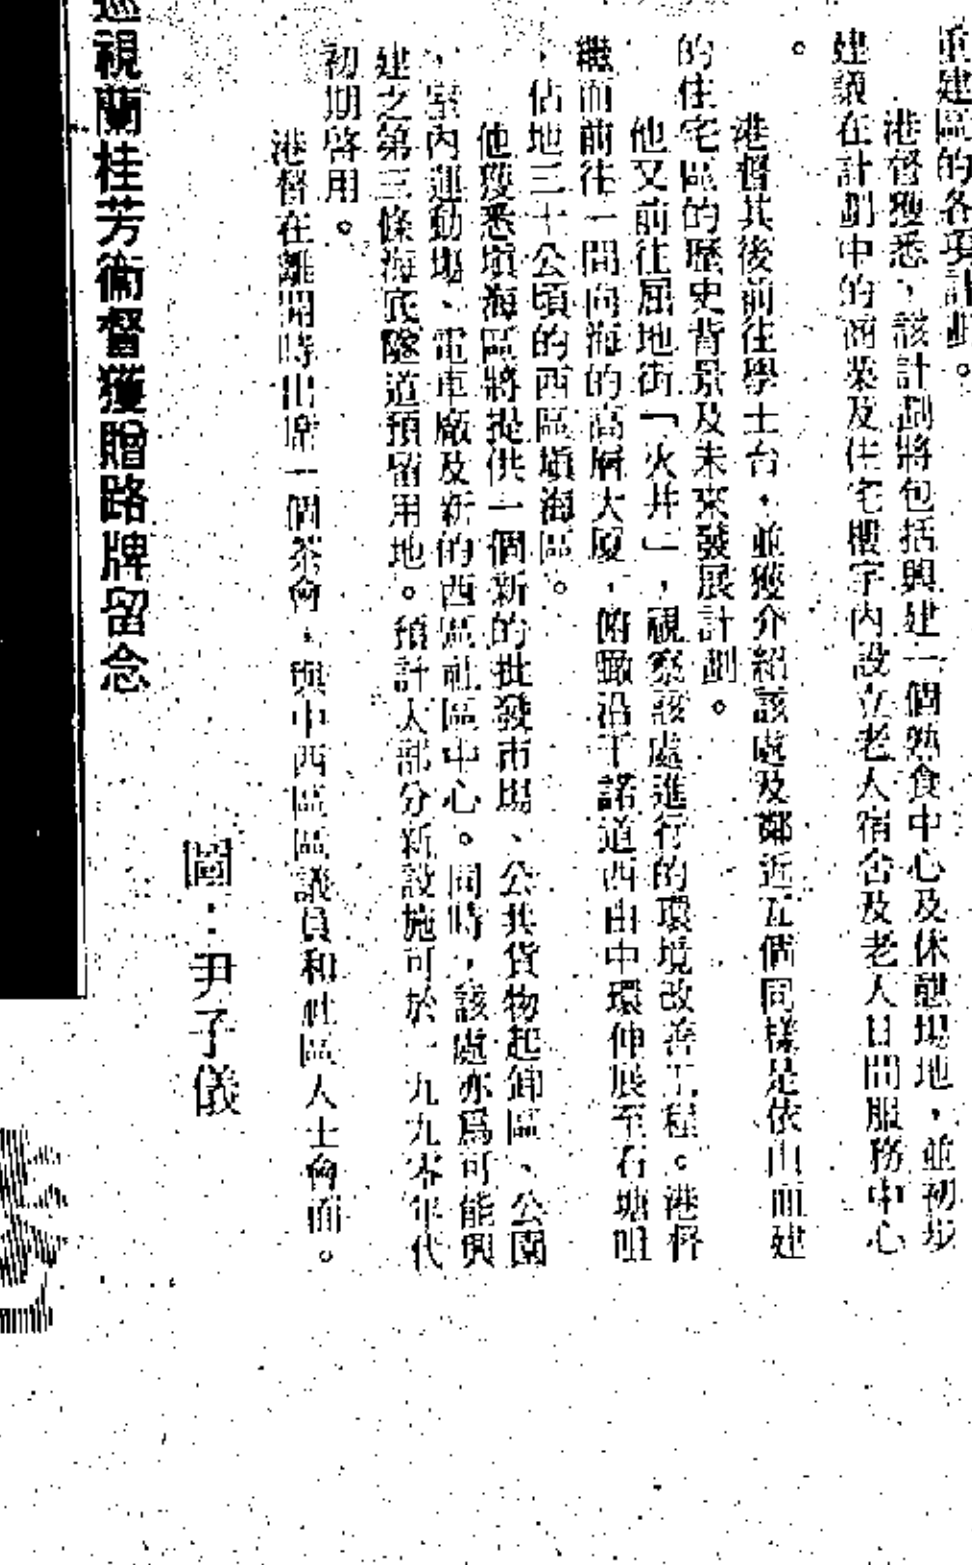 重建區的各項計劃。
港督獲悉，該計劃將包括興建一個熟食中心及休憩場地，並初步
建議在計劃中的商業及住宅樓宇內設立老人宿舍及老人日間服務中心
。
港督其後前往學士台，並獲介紹該處及鄰近五個同樣是依山而建
的住宅區的歷史背景及未來發展計劃。
他又前往屈地街「火井」，視察該處進行的環境改善工程。港督
繼而前往一間向海的高層大廈，俯瞰沿干諾道西由中環伸展至石塘咀
，佔地三十公頃的西區塡海區。
他獲悉塡海區將提供一個新的批發市場、公共貨物起卸區、公園
、室內運動場、電車廠及新的西區社區中心。同時，該處亦爲可能興
建之第三條海底隧道預留用地。預計大部分新設施可於一九九零年代
初期啓用。
港督在離開時出席一個茶會，與中西區區議員和社區人士會面。
圖：尹子儀
巡視蘭桂芳衞督獲贈路牌留念